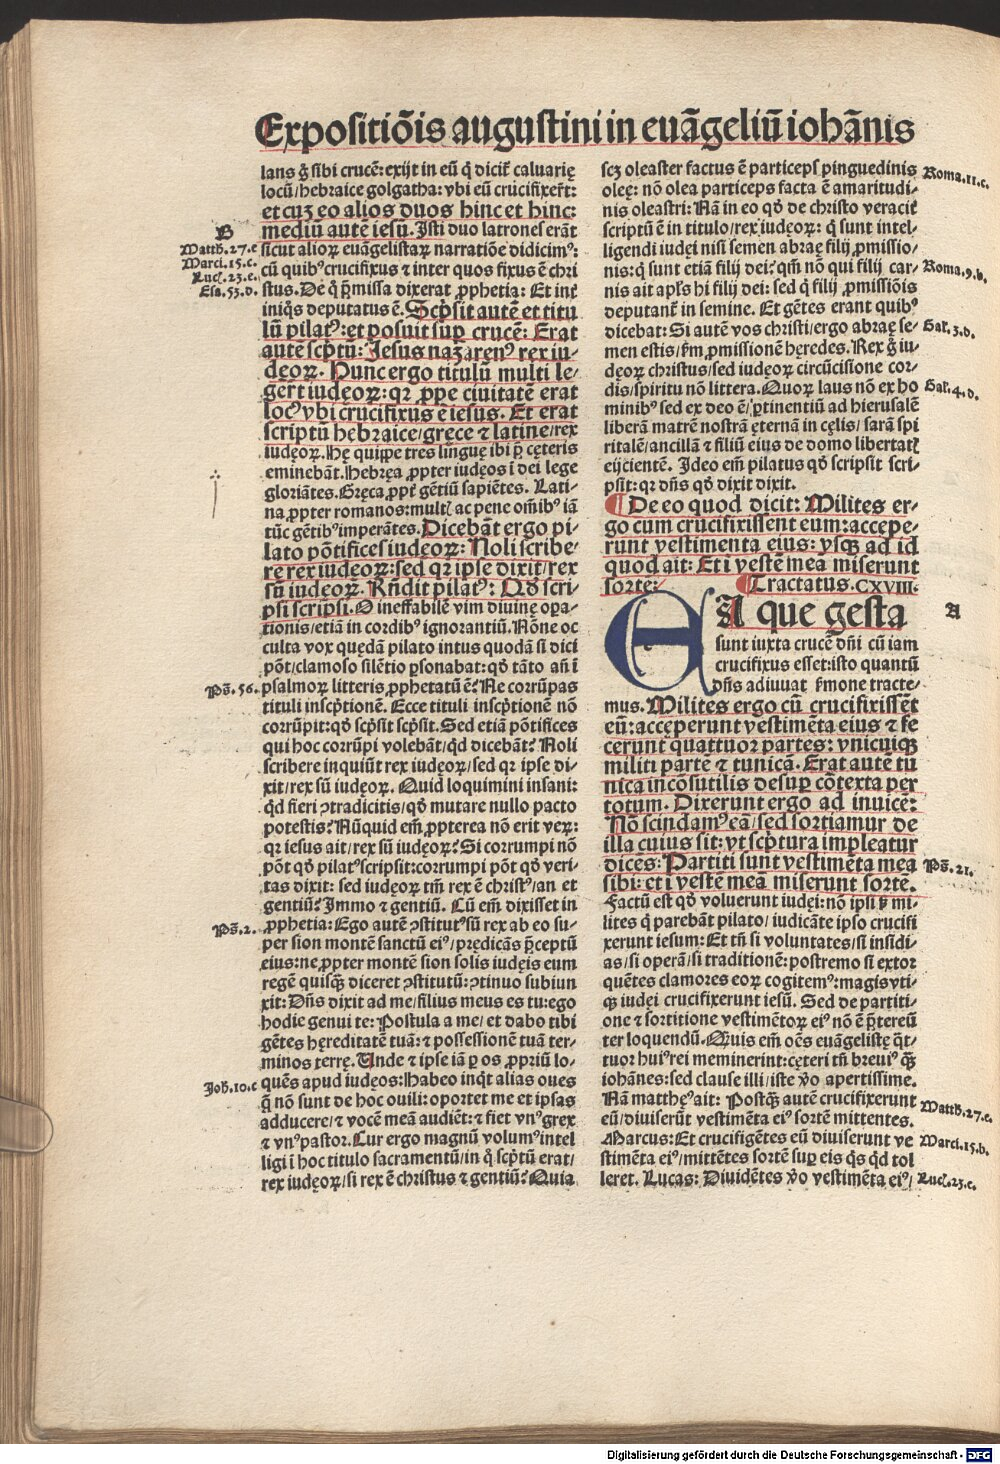 Expositiõis augustini in euãgeliũ iohãnis
lans ḡ sibi crucē: exijt in eũ q̇ dicit̃ caluarię
locũ/hebraice golgatha: vbi eũ crucifixer̃t:
et cuȝ eo alios duos hinc et hinc:
mediũ autē iesũ. Isti duo latrones erãt
sicut alioꝝ euãgelistaꝝ narratiõe didicimꝰ:
cũ quibꝰ crucifixus ⁊ inter quos fixus ē chri
stus. De q̇ p̃missa dixerat ꝓphetia: Et int̃
iniq̇s deputatus ē. Scp̃sit autē et titu
lũ pilatꝰ: et posuit suꝑ crucē: Erat
autē scp̃tũ: Jesus naȝarenꝰ rex iu-
dęoꝝ. Hunc ergo titulũ multi le-
gert̃ iudęoꝝ: qꝛ ꝓpe ciuitatē erat
locꝰ vbi crucifixus ē iesus. Et erat
scriptũ hebraice/gręce ⁊ latine/rex
iudęoꝝ. Hę quippe tres linguę ibi p̃ cęteris
eminebãt. Hebręa ꝓpter iudęos ĩ dei lege
gloriãtes. Gręca ꝓpt̃ gẽtiũ sapiẽtes. Lati-
na ꝓpter romanos: multꝭ ac pene om̃ibꝰ iã
tũc gẽtibꝰ imperãtes. Dicebãt ergo pi-
lato põtifices iudęoꝝ: Noli scribe-
re rex iudęoꝝ: sed qꝛ ipse dixit/rex
sũ iudęoꝝ. Rñdit pilatꝰ: Qð scri-
psi scripsi. O ineffabilē vim diuinę oꝑa-
tionis/etiã in cordibꝰ ignorantiũ. Nõne oc
culta vox quędã pilato intus quodã si dici
põt/clamoso silẽtio ꝑsonabat: qð tãto añ ĩ
psalmoꝝ litteris ꝓphetatũ ē? Ne corrũpas
tituli inscp̃tionē. Ecce tituli inscp̃tionē nõ
corrũpit: qð scp̃sit scp̃sit. Sed etiã põtifices
qui hoc corrũpi volebãt/qď dicebãt? Noli
scribere inquiũt rex iudęoꝝ/sed qꝛ ipse di-
xit/rex sũ iudęoꝝ. Quid loquimini insani:
qď fieri ↄtradicitis/qð mutare nullo pacto
potestis? Nũquid em̃ ꝓpterea nõ erit veꝝ:
qꝛ iesus ait/rex sũ iudęoꝝ? Si corrumpi nõ
põt qð pilatꝰ scripsit: corrumpi põt qð veri-
tas dixit: sed iudęoꝝ tm̃ rex ē christꝰ/an et
gentiũ? Immo ⁊ gentiũ. Cũ em̃ dixisset in
ꝓphetia: Ego autē ↄstitutꝰ sũ rex ab eo su-
per sion montē sanctũ eiꝰ/prędicãs p̃ceptũ
eius: ne ꝓpter montē sion solis iudęis eum
regē quisq̃ diceret ↄstitutũ: ↄtinuo subiun
xit: Dñs dixit ad me/filius meus es tu: ego
hodie genui te: Postula a me/et dabo tibi
gẽtes hęreditatē tuã: ⁊ possessionē tuã ter-
minos terrę. Unde ⁊ ipse iã ꝑ os ꝓpriũ lo-
quẽs apud iudęos: Habeo inq̇t alias oues
q̃ nõ sunt de hoc ouili: oportet me et ipsas
adducere/⁊ vocē meã audiẽt: ⁊ fiet vnꝰ grex
⁊ vnꝰ pastor. Cur ergo magnũ volumꝰ intel
ligi ĩ hoc titulo sacramentũ/in q̇ scp̃tũ erat/
rex iudęoꝝ/si rex ē christus ⁊ gentiũ? Quia
B
Matth. 27. e
Marci. 15. c.
Luc. 23. e.
Esa. 53. d.
Ps̃. 56.
Ps̃. 2.
Joh. 10. c
scȝ oleaster factus ē particeps pinguedinis
oleę: nõ olea particeps facta ē amaritudi-
nis oleastri: Nã in eo qð de christo veracit̃
scriptũ ē in titulo/rex iudęoꝝ: q̇ sunt intel-
ligendi iudęi nisi semen abraę filij ꝓmissio-
nis: q̇ sunt etiã filij dei? qm̃ nõ qui filij car-
nis ait apl̃s hi filij dei: sed q̇ filij ꝓmissiõis
deputant̃ in semine. Et gẽtes erant quibꝰ
dicebat: Si autē vos christi/ergo abraę se-
men estis/s̃m ꝓmissionē hęredes. Rex ḡ iu-
dęoꝝ christus/sed iudęoꝝ circũcisione cor-
dis/spiritu nõ littera. Quoꝝ laus nõ ex ho
minibꝰ sed ex deo ē/ꝑtinentiũ ad hierusalē
liberã matrē nostrã ęternã in cęlis/sarã spi
ritalē/ancillã ⁊ filiũ eius de domo libertatꝭ
eijcientē. Ideo em̃ pilatus qð scripsit scri-
psit: qꝛ dñs qð dixit dixit.
¶ De eo quod dicit: Milites er-
go cum crucifixissent eum: accepe-
runt vestimenta eius: vsqꝫ ad id
quod ait: Et ĩ vestē meã miserunt
sorte: ¶ Tractatus. CXVIII.
EA que gesta
sunt iuxta crucē dñi cũ iam
crucifixus esset: isto quantũ
dñs adiuuat s̃mone tracte-
mus. Milites ergo cũ crucifixissẽt
eũ: accęperunt vestimẽta eius ⁊ fe
cerunt quattuor partes: vnicuiqꝫ
militi partē ⁊ tunicã. Erat autē tu
nica incõsutilis desuꝑ cõtexta per
totum. Dixerunt ergo ad inuicē:
Nõ scindamꝰ eã/sed sortiamur de
illa cuius sit: vt scp̃tura impleatur
dicẽs: Partiti sunt vestimẽta mea
sibi: et ĩ vestē meã miserunt sorte.
Factũ est qð voluerunt iudęi: nõ ipsi sꝫ mi-
lites q̇ parebãt pilato/iudicãte ipso crucifi
xerunt iesum: Et tñ si voluntates/si insidi-
as/si operã/si traditionē: postremo si extor
quẽtes clamores eoꝝ cogitemꝰ: magis vti-
qꝫ iudęi crucifixerunt iesũ. Sed de partiti-
one ⁊ sortitione vestimẽtoꝝ eiꝰ nõ ē p̃tereũ
ter loquendũ. Quis em̃ oẽs euãgelistę q̃t-
tuor huiꝰ rei meminerint: cęteri tñ breuiꝰ q̃ꝫ
iohãnes: sed clause illi/iste v̊o apertissime.
Nã matthęꝰ ait: Postq̃ꝫ autē crucifixerunt
eũ/diuiserũt vestimẽta eiꝰ sortē mittentes.
Marcus: Et crucifigẽtes eũ diuiserunt ve
stimẽta eiꝰ/mittẽtes sortē suꝑ eis q̇s qď tol
leret. Lucas: Diuidẽtes v̊o vestimẽta eiꝰ/
Roma. 11. c.
Roma. 9. b.
Gal̃. 3. d.
Gal̃. 4. d.
A
Ps̃. 21.
Matth. 27. c
Marci. 15. b.
Luc. 23. c.
Digitalisierung gefördert durch die Deutsche Forschungsgemeinschaft - DFG